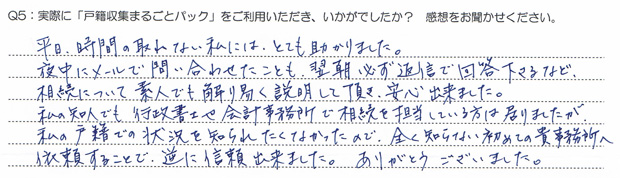 Q5：実際に「戸籍収集まるごとパック」をご利用いただき、いかがでしたか？　感想をお聞かせください。
平日、時間の取れない私には、とても助かりました。
夜中にメールで問い合わせたことも、翌朝必ず返信で回答下さるなど、
相続について素人でも解り易く説明して頂き、安心出来ました。
私の知人でも行政書士や会計事務所で相続を担当している方は居りましたが
私の戸籍での状況を知られたくなかったので、全く知らない初めての貴事務所へ
依頼することで、逆に信頼出来ました。ありがとうございました。